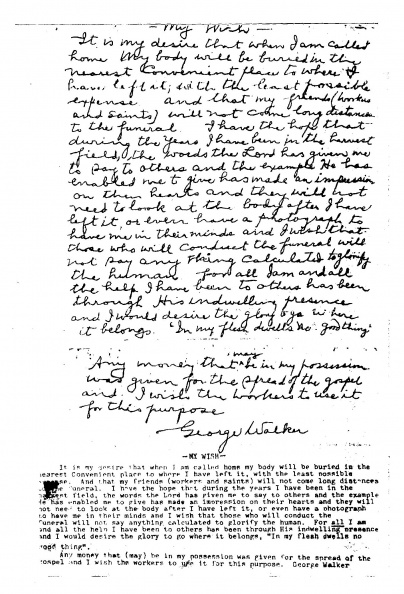 — My Wish —
It is my desire that when I am called
home My body will be buried in the
nearest Convenient place to where I
have left it, with the least possible
expense and that my friends (workers
and saints) will not come long distances
to the funeral. I have the hope that
during the years I have been in the harvest
field, the words the Lord has given me
to say to others and the example He has
enabled me to give has made an impression
on their hearts and they will not
need to look at the body after I have
left it, or even have a photograph to
have me in their minds and I wish that
those who will conduct the funeral will
not say any thing calculated to glorify
the human for all I am and all
the help I have been to others has been
through His indwelling presence
and I would desire the glory to go where
it belongs. "In my flesh dwells no good thing"
Any money that may be in my possession
was given for the spread of the gospel
and I wish the workers to use it
for this purpose
George Walker
—MY WISH—
It is my desire that when I am called home my body will be buried in the
nearest Convenient place to where I have left it, with the least possible
And that my friends (workers and saints) will not come long distances
funeral. I have the hope that during the years I have been in the
field, the words the Lord has given me to say to others and the example
He has enabled me to give has made an impression on their hearts and they will
not need to look at the body after I have left it, or even have a photograph
to have me in their minds and I wish that those who will conduct the
funeral will not say anything calculated to glorify the human. For all I am
and all the help I have been to others has been through His indwelling presence
and I would desire the glory to go where it belongs, "In my flesh dwells no
good thing".
Any money that (may) be in my possession was given for the spread of the
gospel and I wish the workers to use it for this purpose. George Walker